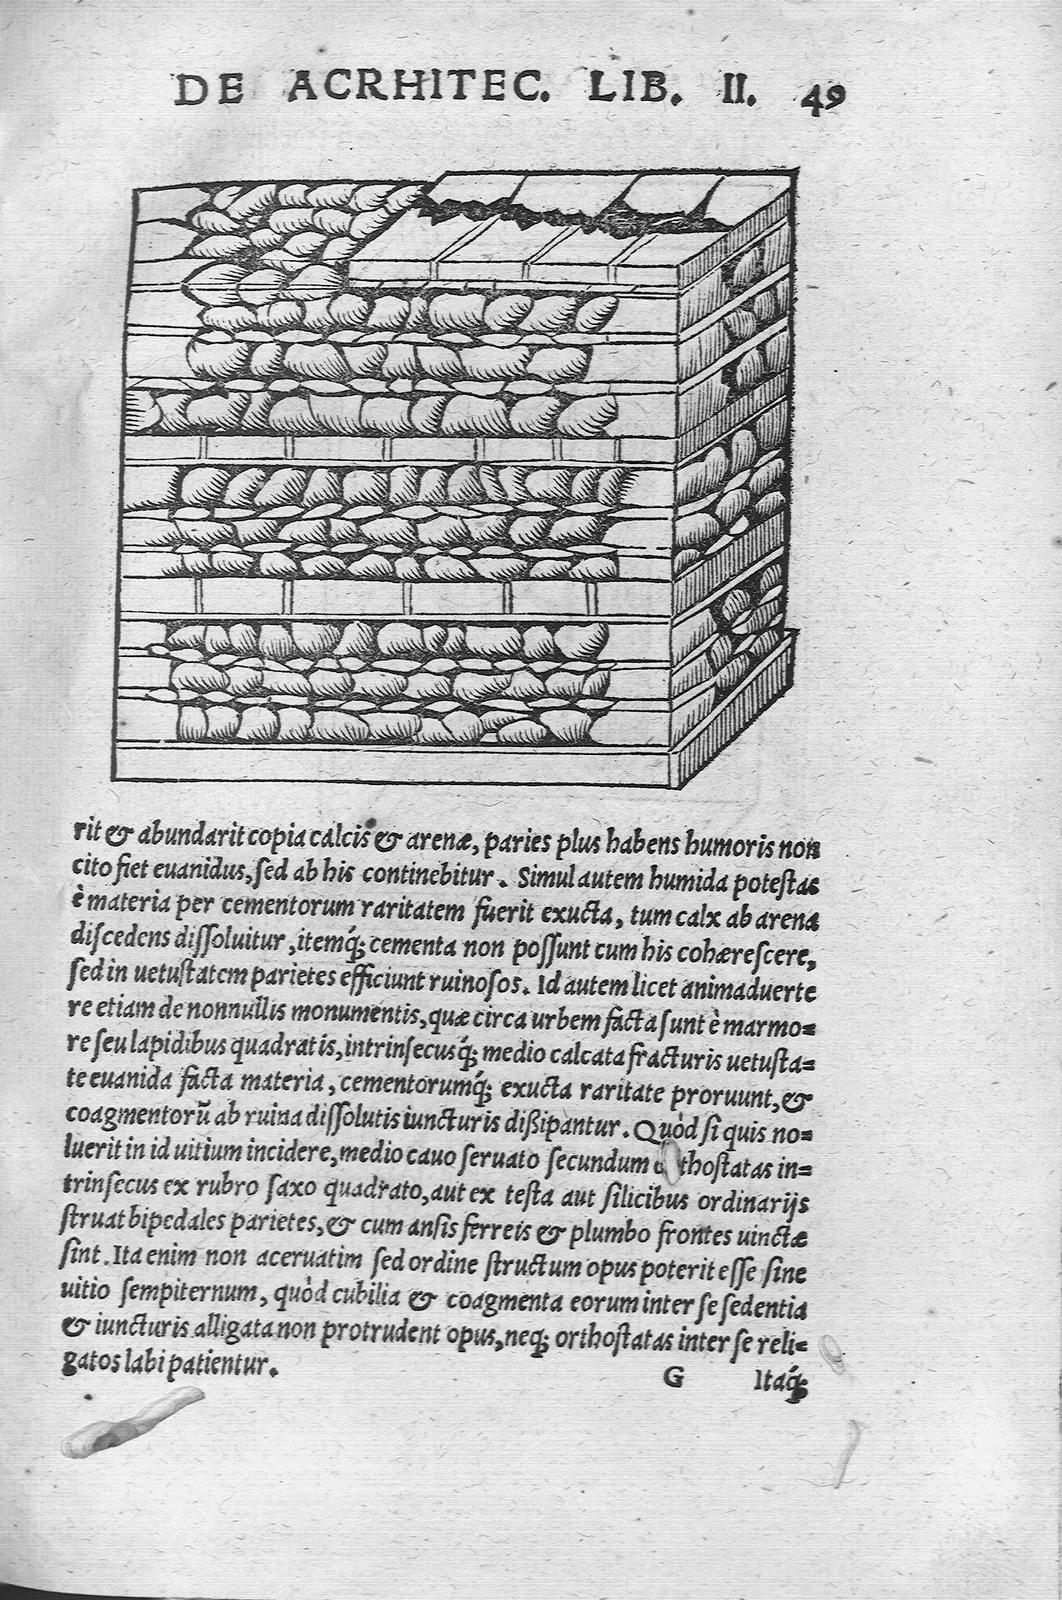 DE ACRHITEC. LIB. II. 49
rit & abundarit copia calcis & arenæ, paries plus habens humoris non
cito fiet euanidus, sed ab his continebitur. Simul autem humida potestas
è materia per cementorum raritatem fuerit exucta, tum calx ab arena
discedens dissoluitur, itemq́; cementa non possunt cum his cohærescere,
sed in uetustatem parietes efficiunt ruinosos. Id autem licet animaduerte
re etiam de nonnullis monumentis, quæ circa urbem facta sunt è marmo=
re seu lapidibus quadratis, intrinsecusq́; medio calcata fracturis uetusta=
te euanida facta materia, cementorumq́; exucta raritate proruunt, &
coagmentorũ ab ruina dissolutis iuncturis dißipantur. Quòd si quis no=
luerit in id uitium incidere, medio cauo seruato secundum orthostatas in=
trinsecus ex rubro saxo quadrato, aut ex testa aut silicibus ordinarijs
struat bipedales parietes, & cum ansis ferreis & plumbo frontes uinctæ
sint. Ita enim non aceruatim sed ordine structum opus poterit esse sine
uitio sempiternum, quòd cubilia & coagmenta eorum inter se sedentia
& iuncturis alligata non protrudent opus, neq; orthostatas inter se reli=
gatos labi patientur.
G Itaq́;